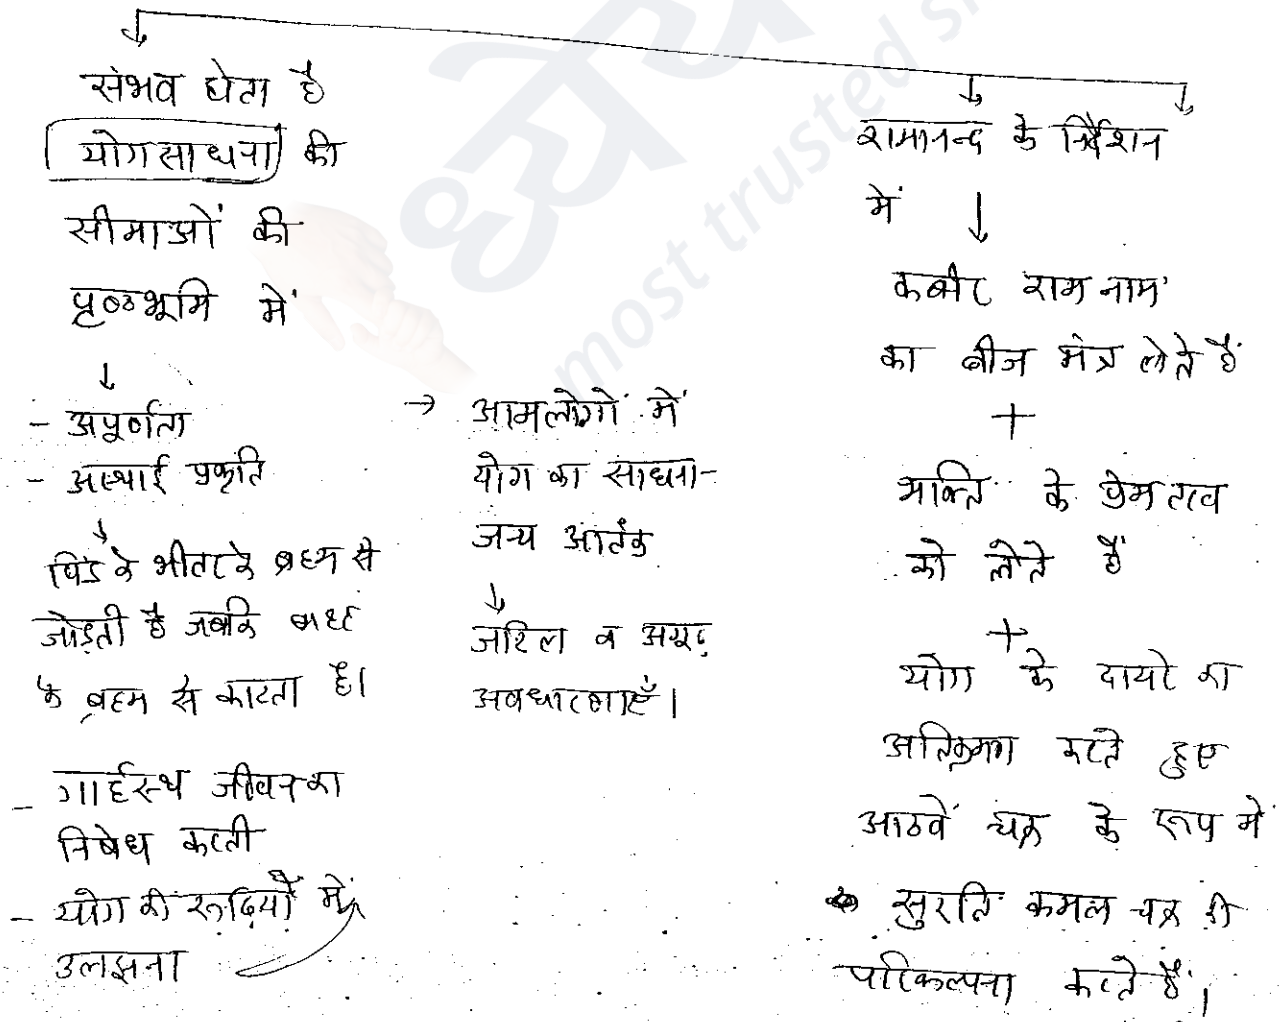 संभव होता है
योगसाधना की
सीमाओं की
पृष्ठभूमि में
↓
- अपूर्णता
- अस्थाई प्रकृति
↓
पिंड के भीतर के ब्रह्म से
जोड़ती है जबकि बाहर
के ब्रहम से काटता है।
- गार्हस्थ जीवन का
निषेध करती
- योग की रूढ़ियों में
उलझना
→ आमलोगों में
योग का साधना-
जन्य आतंक
↓
जटिल व अमूर्त
अवधारणाएँ।
रामानन्द के निर्देशन
में ↓
कबीर राम नाम
का बीज मंत्र लेते हैं
+
भक्ति के प्रेम तत्व
को लेते हैं
+
योग के दायरे का
अतिक्रमण करते हुए
आठवें चक्र के रूप में
सुरति कमल चक्र की
परिकल्पना करते हैं।
ध्येय
most trusted